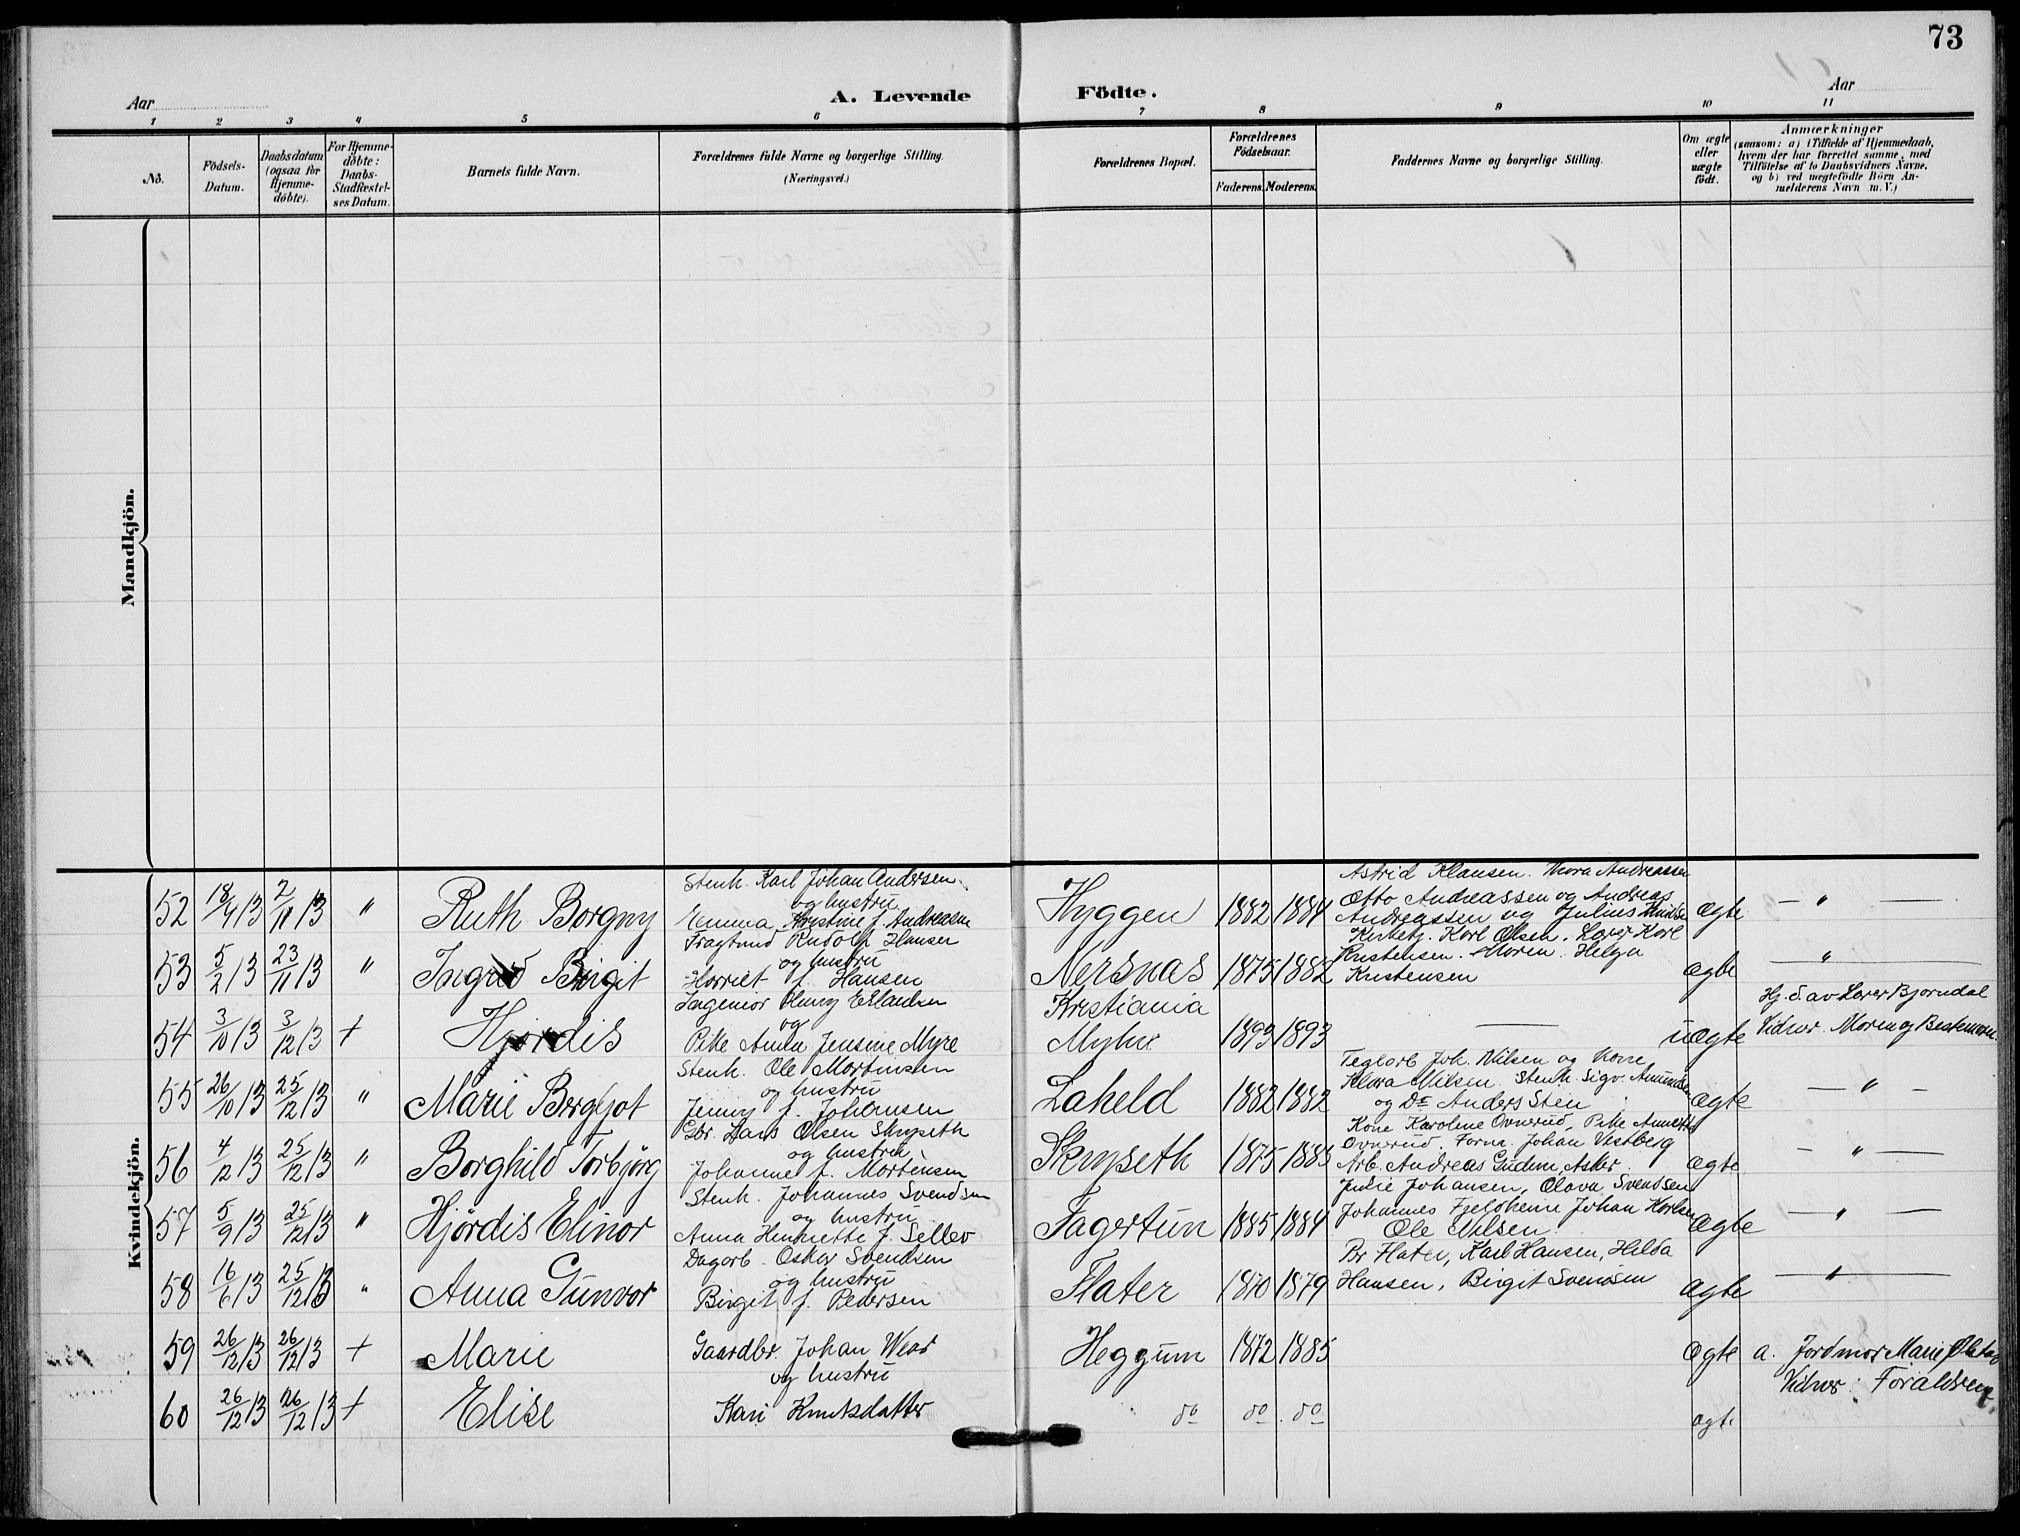 73
Aar
A. Levende
Födte.
Aar
1 2 3 4 5 6 7 8 9 10 11
No.
Födsels-
Datum.
Daabsdatum
(ogsaa for
Hjemme-
döbte).
For Hjemme-
döbte:
Daabs-
Stadfæstel-
ses Datum.
Barnets fulde Navn.
Forældrenes fulde Navne og borgerlige Stilling.
(Næringsvei.)
Forældrenes Bopæl.
Forældrenes
Födselsaar.
Faderens. Moderens.
Faddernes Navne og borgerlige Stilling.
Om ægte
eller
uægte
födt.
Anmærkninger
(saasom: a) i Tilfælde af Hjemmedaab,
hvem der har forrettet samme, med
Tilföielse af to Daabsvidners Navne,
og b) ved uægtefödte Börn An-
melderens Navn m. V.)
Mandkjön.
Kvindekjön.
52 18/4 13 2/11 13 " Ruth Borgny
Stenh. Karl Johan Andersen
og hustru
Emma Kristine f. Andreasen
Hyggen 1882 1884
Astrid Klausen. Thora Andreassen
Otto Andreassen og Andreas
Andreassen og Julius Knudsen
ægte — " —
53 5/2 13 23/11 13 " Ingrid Birgit
Fragtmd Rudolf Hansen
og hustru
Harriet f. Hansen
Nersnæs 1875 1882
Kirketj. Karl Olsen. Lærer Karl
Kristensen. Moren. Helga
Kristensen
ægte — " —
54 3/10 13 3/12 13 + Hjørdis
Ingeniør Henry Erlandsen
og
Pike Anna Jensine Myre
Kristiania
Myhre 1893 1893
—
uægte
Hj. d. av Lærer Bjørndal
Vidner. Moren og Bestemor.
55 26/10 13 25/12 13 " Marie Bergljot
Stenh. Ole Mortensen
og hustru
Jenny f. Johansen
Laheld 1882 1882
Teglarb. Joh. Nilsen og Kone
Klara Nilsen. Stenh. Sigv. Amundsen
og Do Anders Sten
ægte — " —
56 4/12 13 25/12 13 " Borghild Torbjørg
Gbr. Hans Olsen Skryseth
og hustru
Johanne f. Mortensen
Skryseth 1875 1883
Kone Karoline Ovnerud, Pike Annette
Ovnerud. Forna. Johan Vestberg
Arb. Andreas Gudem, Asker.
ægte — " —
57 5/9 13 25/12 13 " Hjørdis Elinor
Stenh. Johannes Svendsen
og hustru
Anna Henriette f. Selle
Fagertun 1885 1884
Julie Johansen, Olava Svendsen
Johannes Fjeldheim Johan Karlsen
Ole Nilsen
ægte — " —
58 16/6 13 25/12 13 " Anna Gunvor
Dagarb. Oskar Svendsen
og hustru
Birgit f. Pedersen
Flater 1870 1879
Br Flater, Karl Hansen, Hilda
Hansen, Birgit Svendsen
ægte — " —
59 26/12 13 26/12 13 + Marie
Gaardbr. Johan Wear
og hustru
Heggum 1872 1885
ægte
a. Jordmor Marie
Vidner: Forældrene.
60 26/12 13 26/12 13 + Elise
Kari Knutsdatter
do do do
ægte